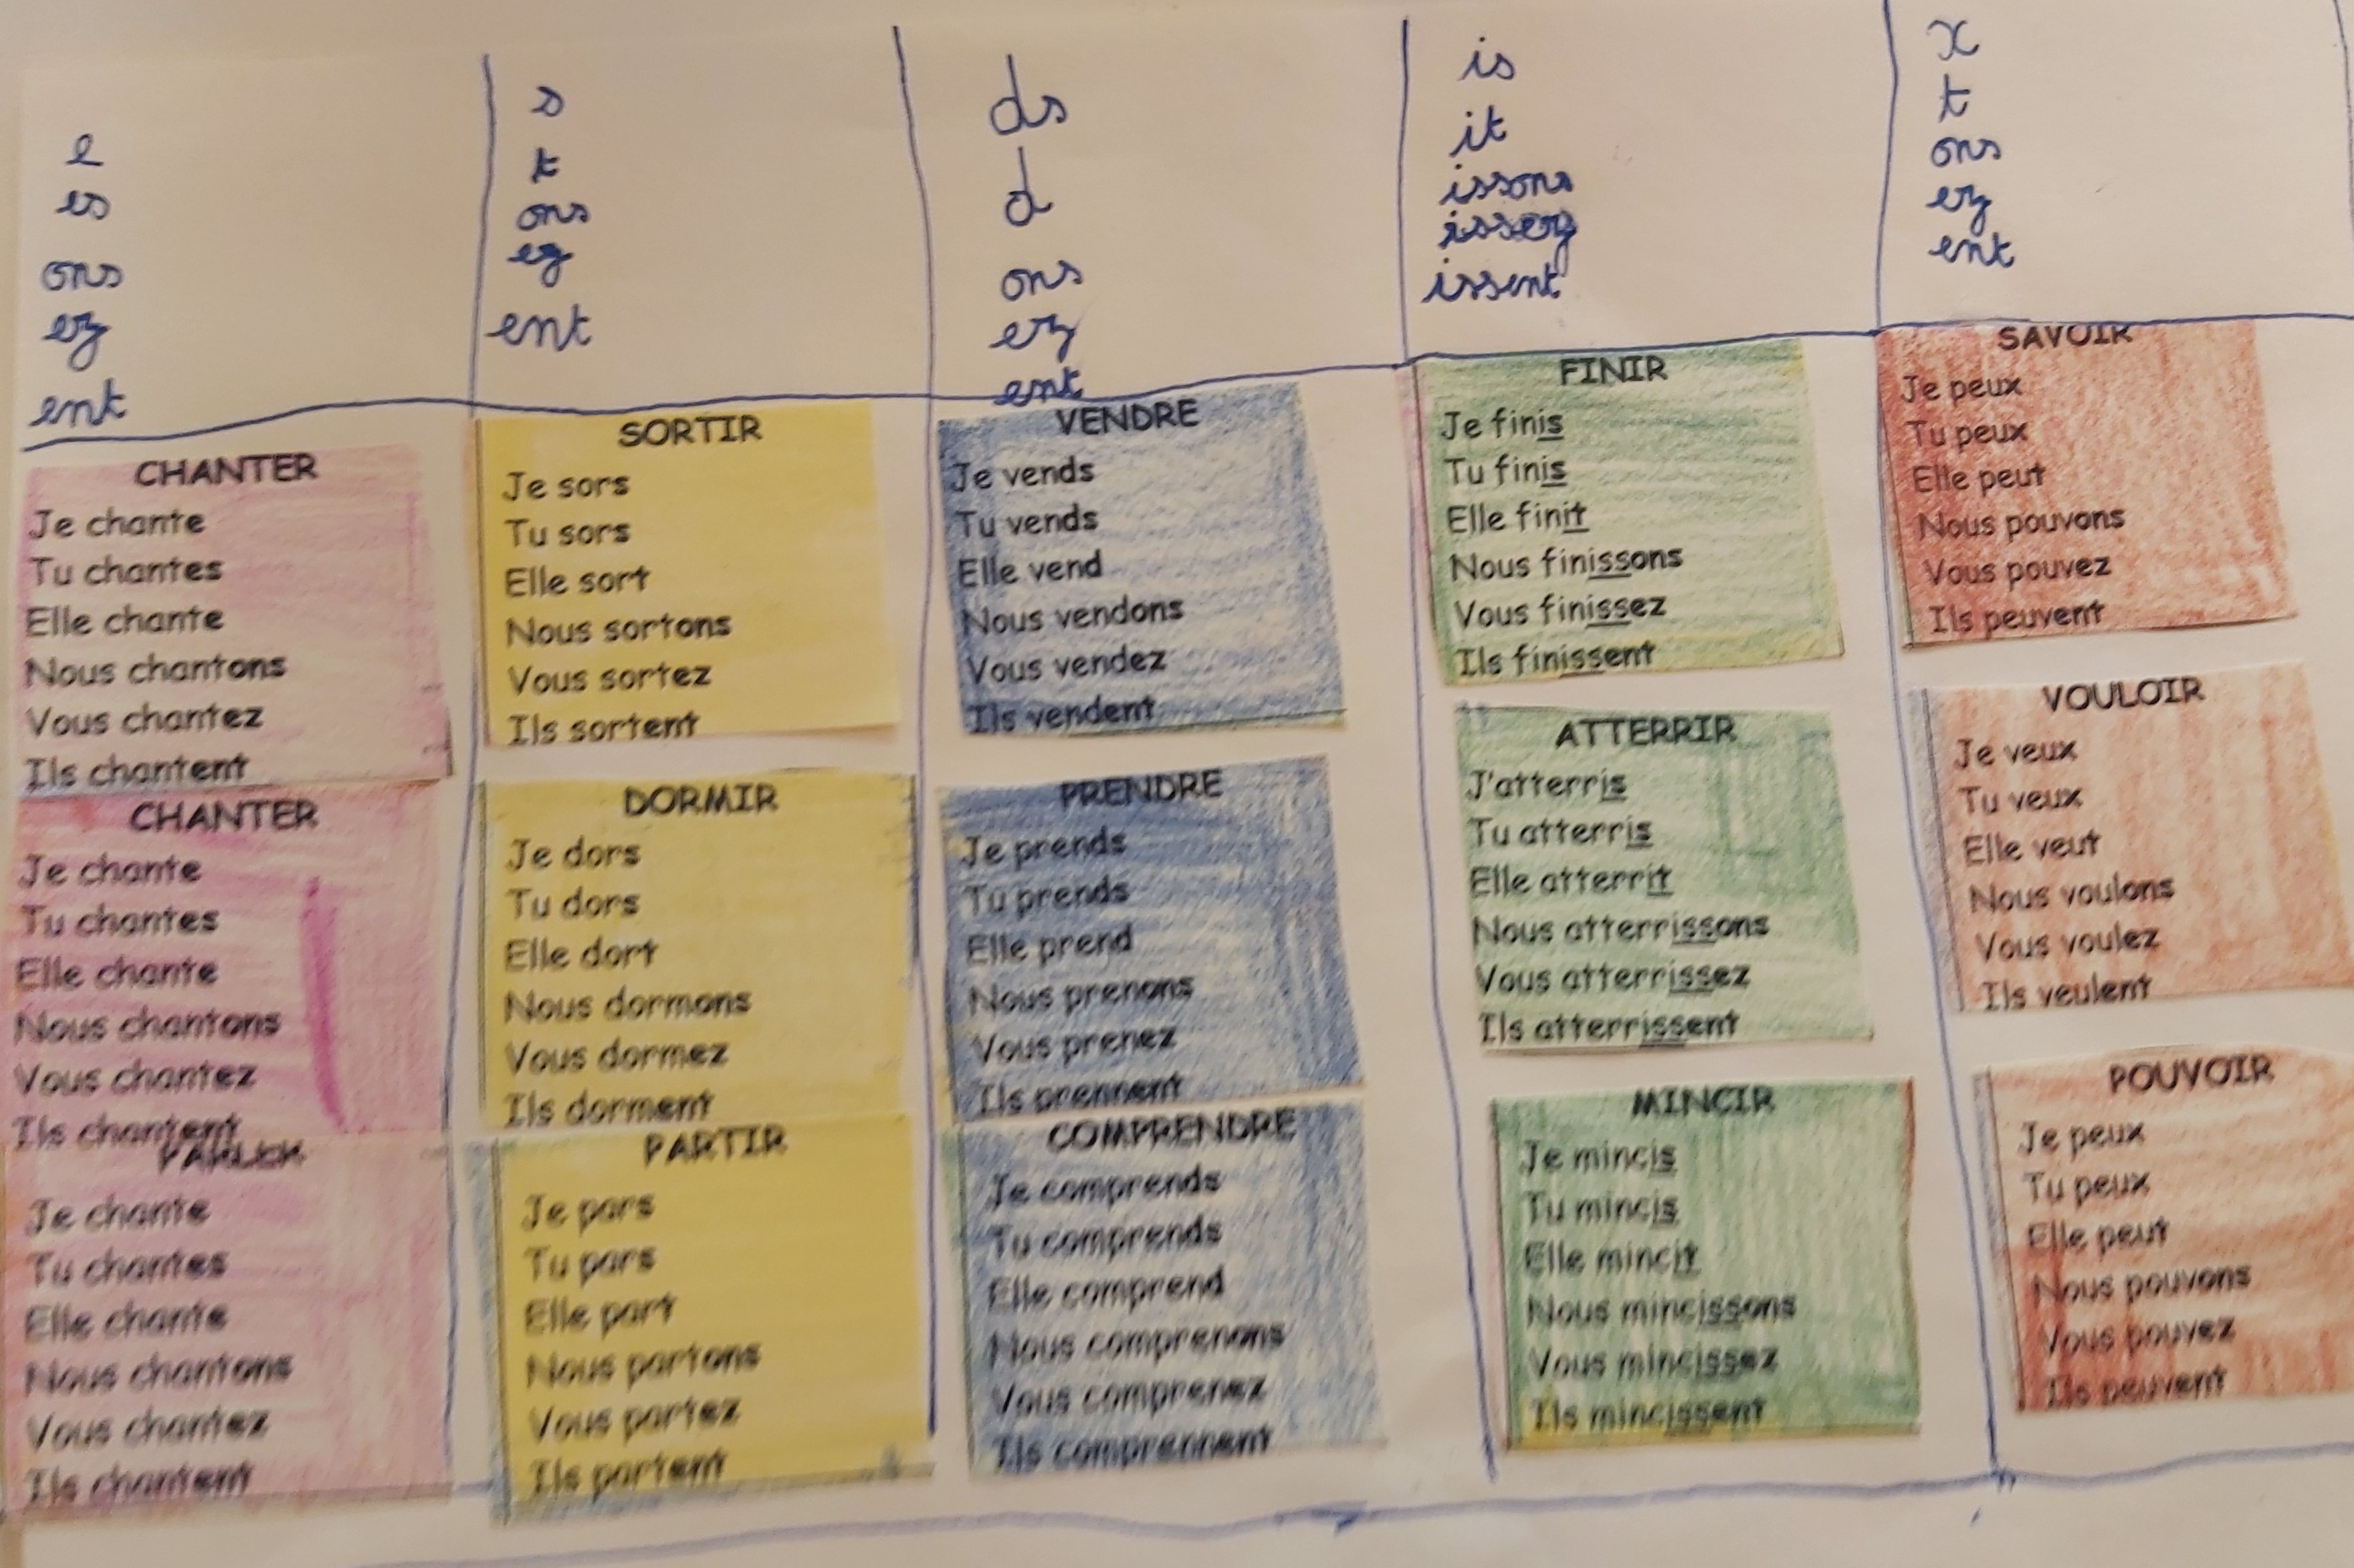 e
es
ons
ez
ent
CHANTER
Je chante
Tu chantes
Elle chante
Nous chantons
Vous chantez
Ils chantent
CHANTER
Je chante
Tu chantes
Elle chante
Nous chantons
Vous chantez
Ils chantent
PARLER
Je chante
Tu chantes
Elle chante
Nous chantons
Vous chantez
Ils chantent
s
t
ons
ez
ent
SORTIR
Je sors
Tu sors
Elle sort
Nous sortons
Vous sortez
Ils sortent
DORMIR
Je dors
Tu dors
Elle dort
Nous dormons
Vous dormez
Ils dorment
PARTIR
Je pars
Tu pars
Elle part
Nous partons
Vous partez
Ils partent
ds
d
ons
ez
ent
VENDRE
Je vends
Tu vends
Elle vend
Nous vendons
Vous vendez
Ils vendent
PRENDRE
Je prends
Tu prends
Elle prend
Nous prenons
Vous prenez
Ils prennent
COMPRENDRE
Je comprends
Tu comprends
Elle comprend
Nous comprenons
Vous comprenez
Ils comprennent
is
it
issons
issez
issent
FINIR
Je finis
Tu finis
Elle finit
Nous finissons
Vous finissez
Ils finissent
ATTERRIR
J'atterris
Tu atterris
Elle atterrit
Nous atterrissons
Vous atterrissez
Ils atterrissent
MINCIR
Je mincis
Tu mincis
Elle mincit
Nous mincissons
Vous mincissez
Ils mincissent
x
t
ons
ez
ent
SAVOIR
Je peux
Tu peux
Elle peut
Nous pouvons
Vous pouvez
Ils peuvent
VOULOIR
Je veux
Tu veux
Elle veut
Nous voulons
Vous voulez
Ils veulent
POUVOIR
Je peux
Tu peux
Elle peut
Nous pouvons
Vous pouvez
Ils peuvent